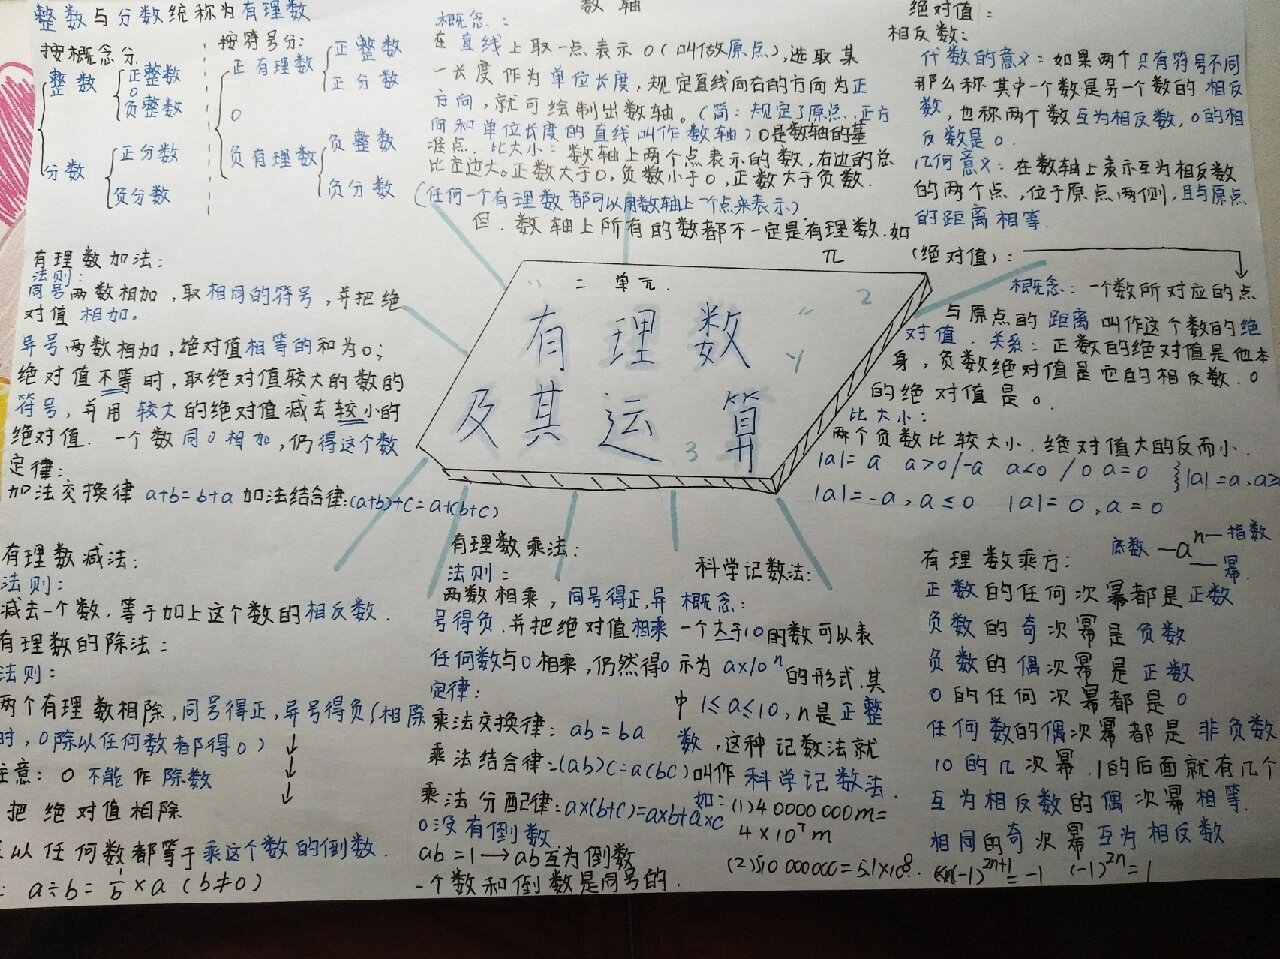 整数与分数统称为有理数
按概念分
整数
正整数
0
负整数
分数
正分数
负分数
按符号分:
正有理数
正整数
正分数
0
负有理数
负整数
负分数
数轴
概念:
在直线上取一点表示0(叫做原点),选取某
一长度作为单位长度,规定直线向右的方向为正
方向,就可绘制出数轴。(简:规定了原点、正方
向和单位长度的直线叫作数轴)0是数轴的基
准点. 比大小: 数轴上两个点表示的数,右边的总
比左边大。正数大于0,负数小于0,正数大于负数.
(任何一个有理数都可以用数轴上一个点来表示)
但.数轴上所有的数都不一定是有理数.如
π
绝对值:
相反数:
代数的意义:如果两个只有符号不同
那么称其中一个数是另一个数的相反
数,也称两个数互为相反数,0的相
反数是0.
几何意义:在数轴上表示互为相反数
的两个点,位于原点两侧,且与原点
的距离相等.
(绝对值):
概念:一个数所对应的点
与原点的距离叫作这个数的绝
对值.关系:正数的绝对值是他本
身,负数绝对值是它的相反数.0
的绝对值是0.
比大小:
两个负数比较大小.绝对值大的反而小.
|a|=a a>0/-a a<0/0 a=0 }|a|=a,a≥
|a|=-a,a≤0 |a|=0,a=0
有理数加法:
法则:
同号两数相加,取相同的符号,并把绝
对值相加。
异号两数相加,绝对值相等的和为0;
绝对值不等时,取绝对值较大的数的
符号,并用较大的绝对值减去较小的
绝对值. 一个数同0相加,仍得这个数
定律:
加法交换律 a+b=b+a 加法结合律:(a+b)+c=a+(b+c)
二单元.
有理数
及其运算
2
3
有理数减法:
法则:
减去一个数.等于加上这个数的相反数.
有理数的除法:
法则:
两个有理数相除,同号得正,异号得负(相除
时,0除以任何数都得0)
注意: 0不能作除数
把绝对值相除
以任何数都等于乘这个数的倒数.
: a÷b=1/b×a (b≠0)
有理数乘法:
法则:
两数相乘,同号得正,异
号得负.并把绝对值相乘
任何数与0相乘,仍然得0
定律:
乘法交换律: ab=ba
乘法结合律:(ab)c=a(bc)
乘法分配律:a×(b+c)=a×b+a×c
0没有倒数
ab=1→ab互为倒数
一个数和倒数是同号的.
科学记数法:
概念:
一个大于10的数可以表
示为 a×10ⁿ的形式.其
中1≤a≤10,n是正整
数,这种记数法就
叫作科学记数法.
如:(1)40000000m=
4×10⁷m
(2)510000000=5.1×10⁸.
有理数乘方:
底数—aⁿ—指数
—幂
正数的任何次幂都是正数
负数的奇次幂是负数
负数的偶次幂是正数
0的任何次幂都是0
任何数的偶次幂都是非负数
10的几次幂.1的后面就有几个
互为相反数的偶次幂相等.
相同的奇次幂互为相反数
(-1)²ⁿ⁺¹=-1 (-1)²ⁿ=1